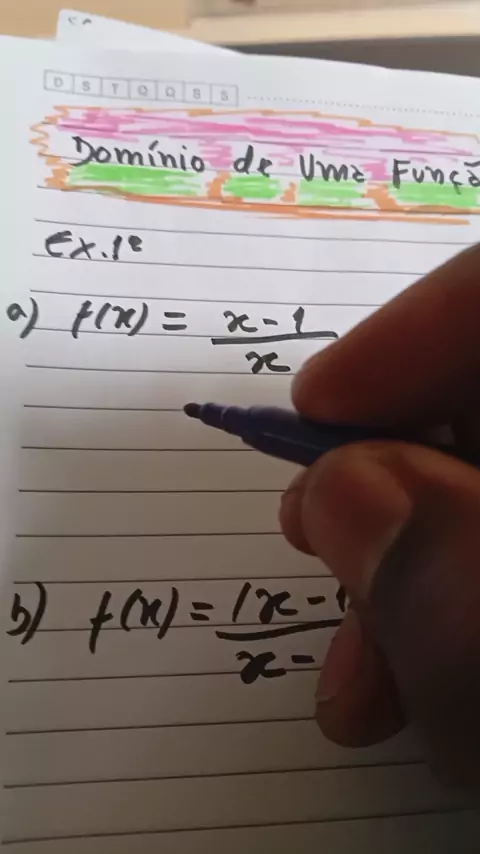 D S T Q Q S S
Domínio de Uma
Ex.1º
a) f(x) = x - 1
x
b) f(x) = |x - 1
x -